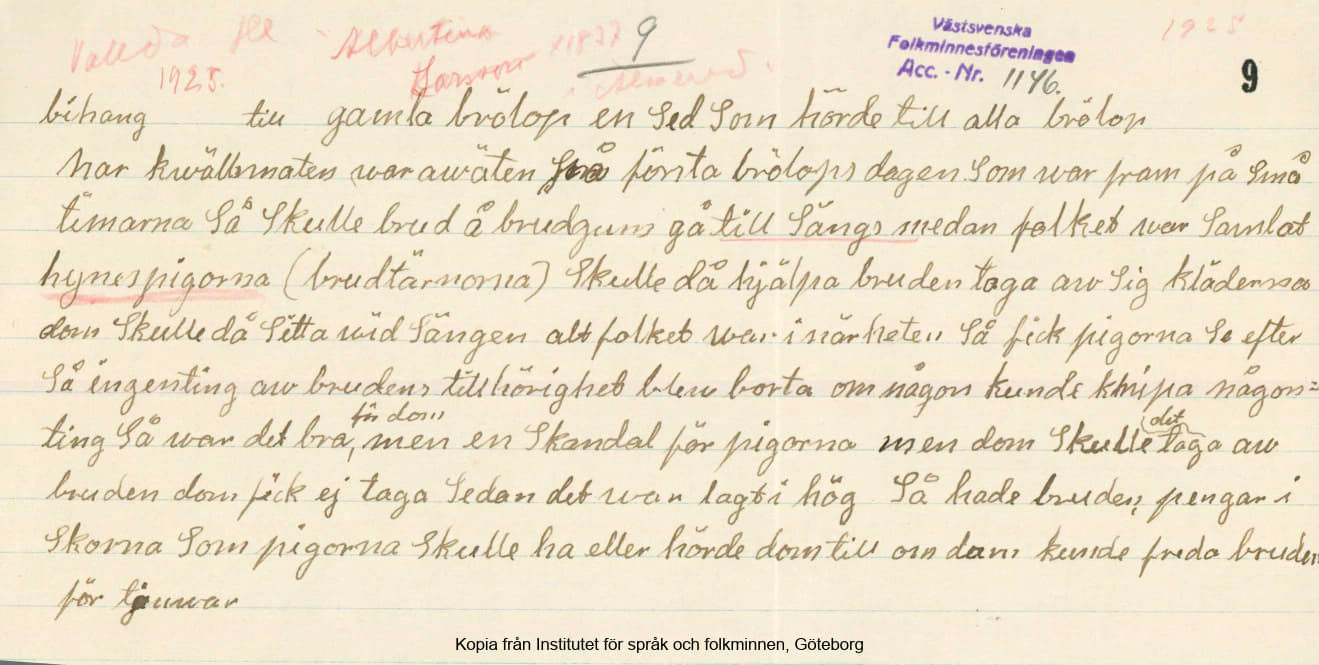 Vallda Hl - Albertina x1837 9 Västsvenska 1925
1925. Larsson i Folkminnesföreningen
Acc. - Nr. 1146. 9
bihang till gamla brölop en Sed Som hörde till alla brölop
nar kwällsmaten war awäten första brölops dagen Som war fram på Små
timarna Så Skulle brud å brudgum gå till Sängs medan folket war Samlat
hynespigorna (brudtärnorna) Skulle då hjälpa bruden taga aw Sig kläderna
dom Skulle då Sitta wid Sängen alt folket war i närheten Så fick pigorna Se efter
Så ingenting aw brudens tillhörighet blew borta om någon kunde knipa någon=
ting Så war det bra, för dom men en Skandal för pigorna men dom Skulle det taga aw
bruden dom fick ej taga Sedan det war lagt i hög Så hade bruden pengar i
Skorna Som pigorna Skulle ha eller hörde dom till om dom kunde freda bruden
för tjuwar
Kopia från Institutet för språk och folkminnen, Göteborg